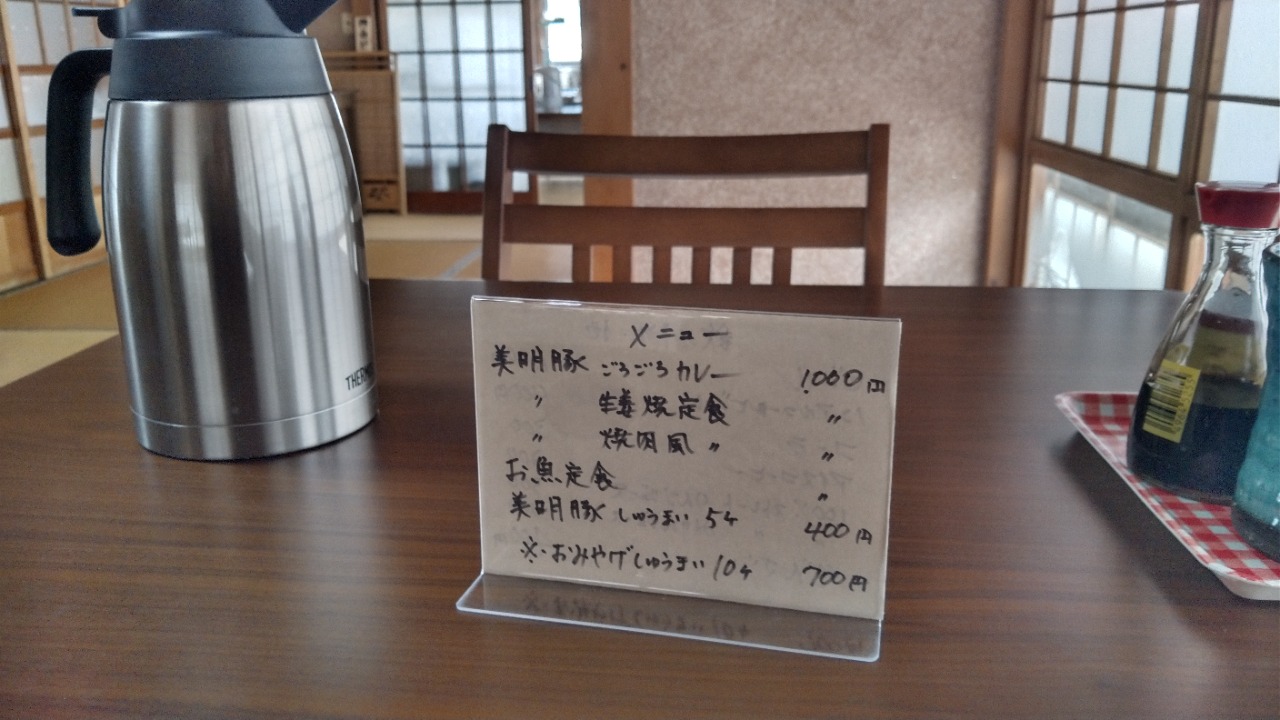 メニュー
美明豚 ごろごろカレー 1000円
〃 生姜焼定食 〃
〃 焼肉風 〃 〃
お魚定食 〃
美明豚 しゅうまい 5ヶ 400円
※おみやげしゅうまい 10ヶ 700円
THERMOS